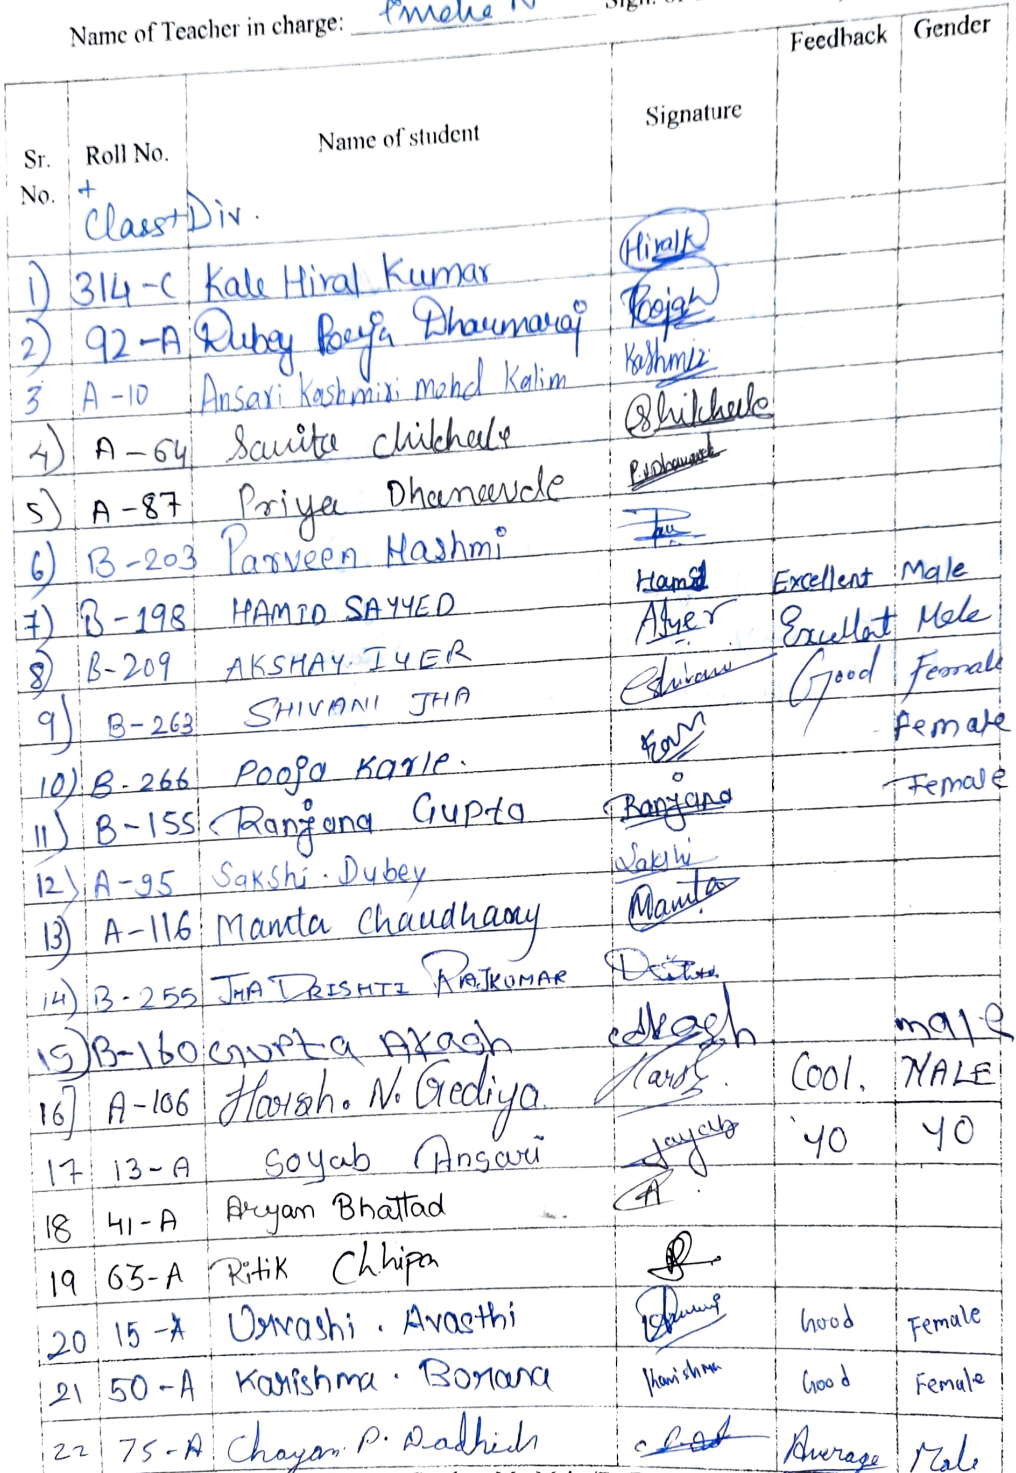 Name of Teacher in charge:
Sr. No. Roll No. + Class+Div. Name of student Signature Feedback Gender
1) 314-C Kale Hiral Kumar Hiralk
2) 92-A Dubey Pooja Dharmaraj Poojah
3 A-10 Ansari Kashmiri mohd Kalim Kashmiri
4) A-64 Savita Chikhale Chikhale
5) A-87 Priya Dhanawde P.Dhanawde
6) B-203 Parveen Hashmi
7) B-198 HAMID SAYYED Hamid Excellent Male
8) B-209 AKSHAY. IYER AIyer Excellent Male
9) B-263 SHIVANI JHA Shivani Good Female
10) B-266 Pooja Karle. Female
11) B-155 Ranjana Gupta Ranjana Female
12) A-95 Sakshi. Dubey Sakshi
13) A-116 Mamta Chaudhary Mamta
14) B-255 JHA DRISHTI RAJKUMAR
15) B-160 Gupta Akash Akash male
16] A-106 Harsh. N. Gediya Harsh Cool. MALE
17 13-A Soyab Ansari YO YO
18 41-A Aryan Bhattad A
19 63-A Ritik Chhipa
20 15-A Urvashi. Avasthi Good Female
21 50-A Karishma. Borana Karishma Good Female
22 75-A Chayan P. Dadhich Average Male